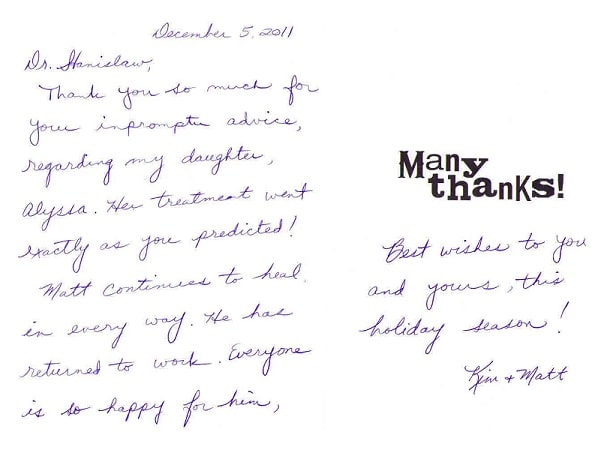 December 5, 2011
Dr. Stanislaw,
Thank you so much for
your inpromptu advice,
regarding my daughter,
Alyssa. Her treatment went
exactly as you predicted!
Matt continues to heal
in every way. He has
returned to work. Everyone
is so happy for him,
Many
thanks!
Best wishes to you
and yours, this
holiday season!
Kim + Matt